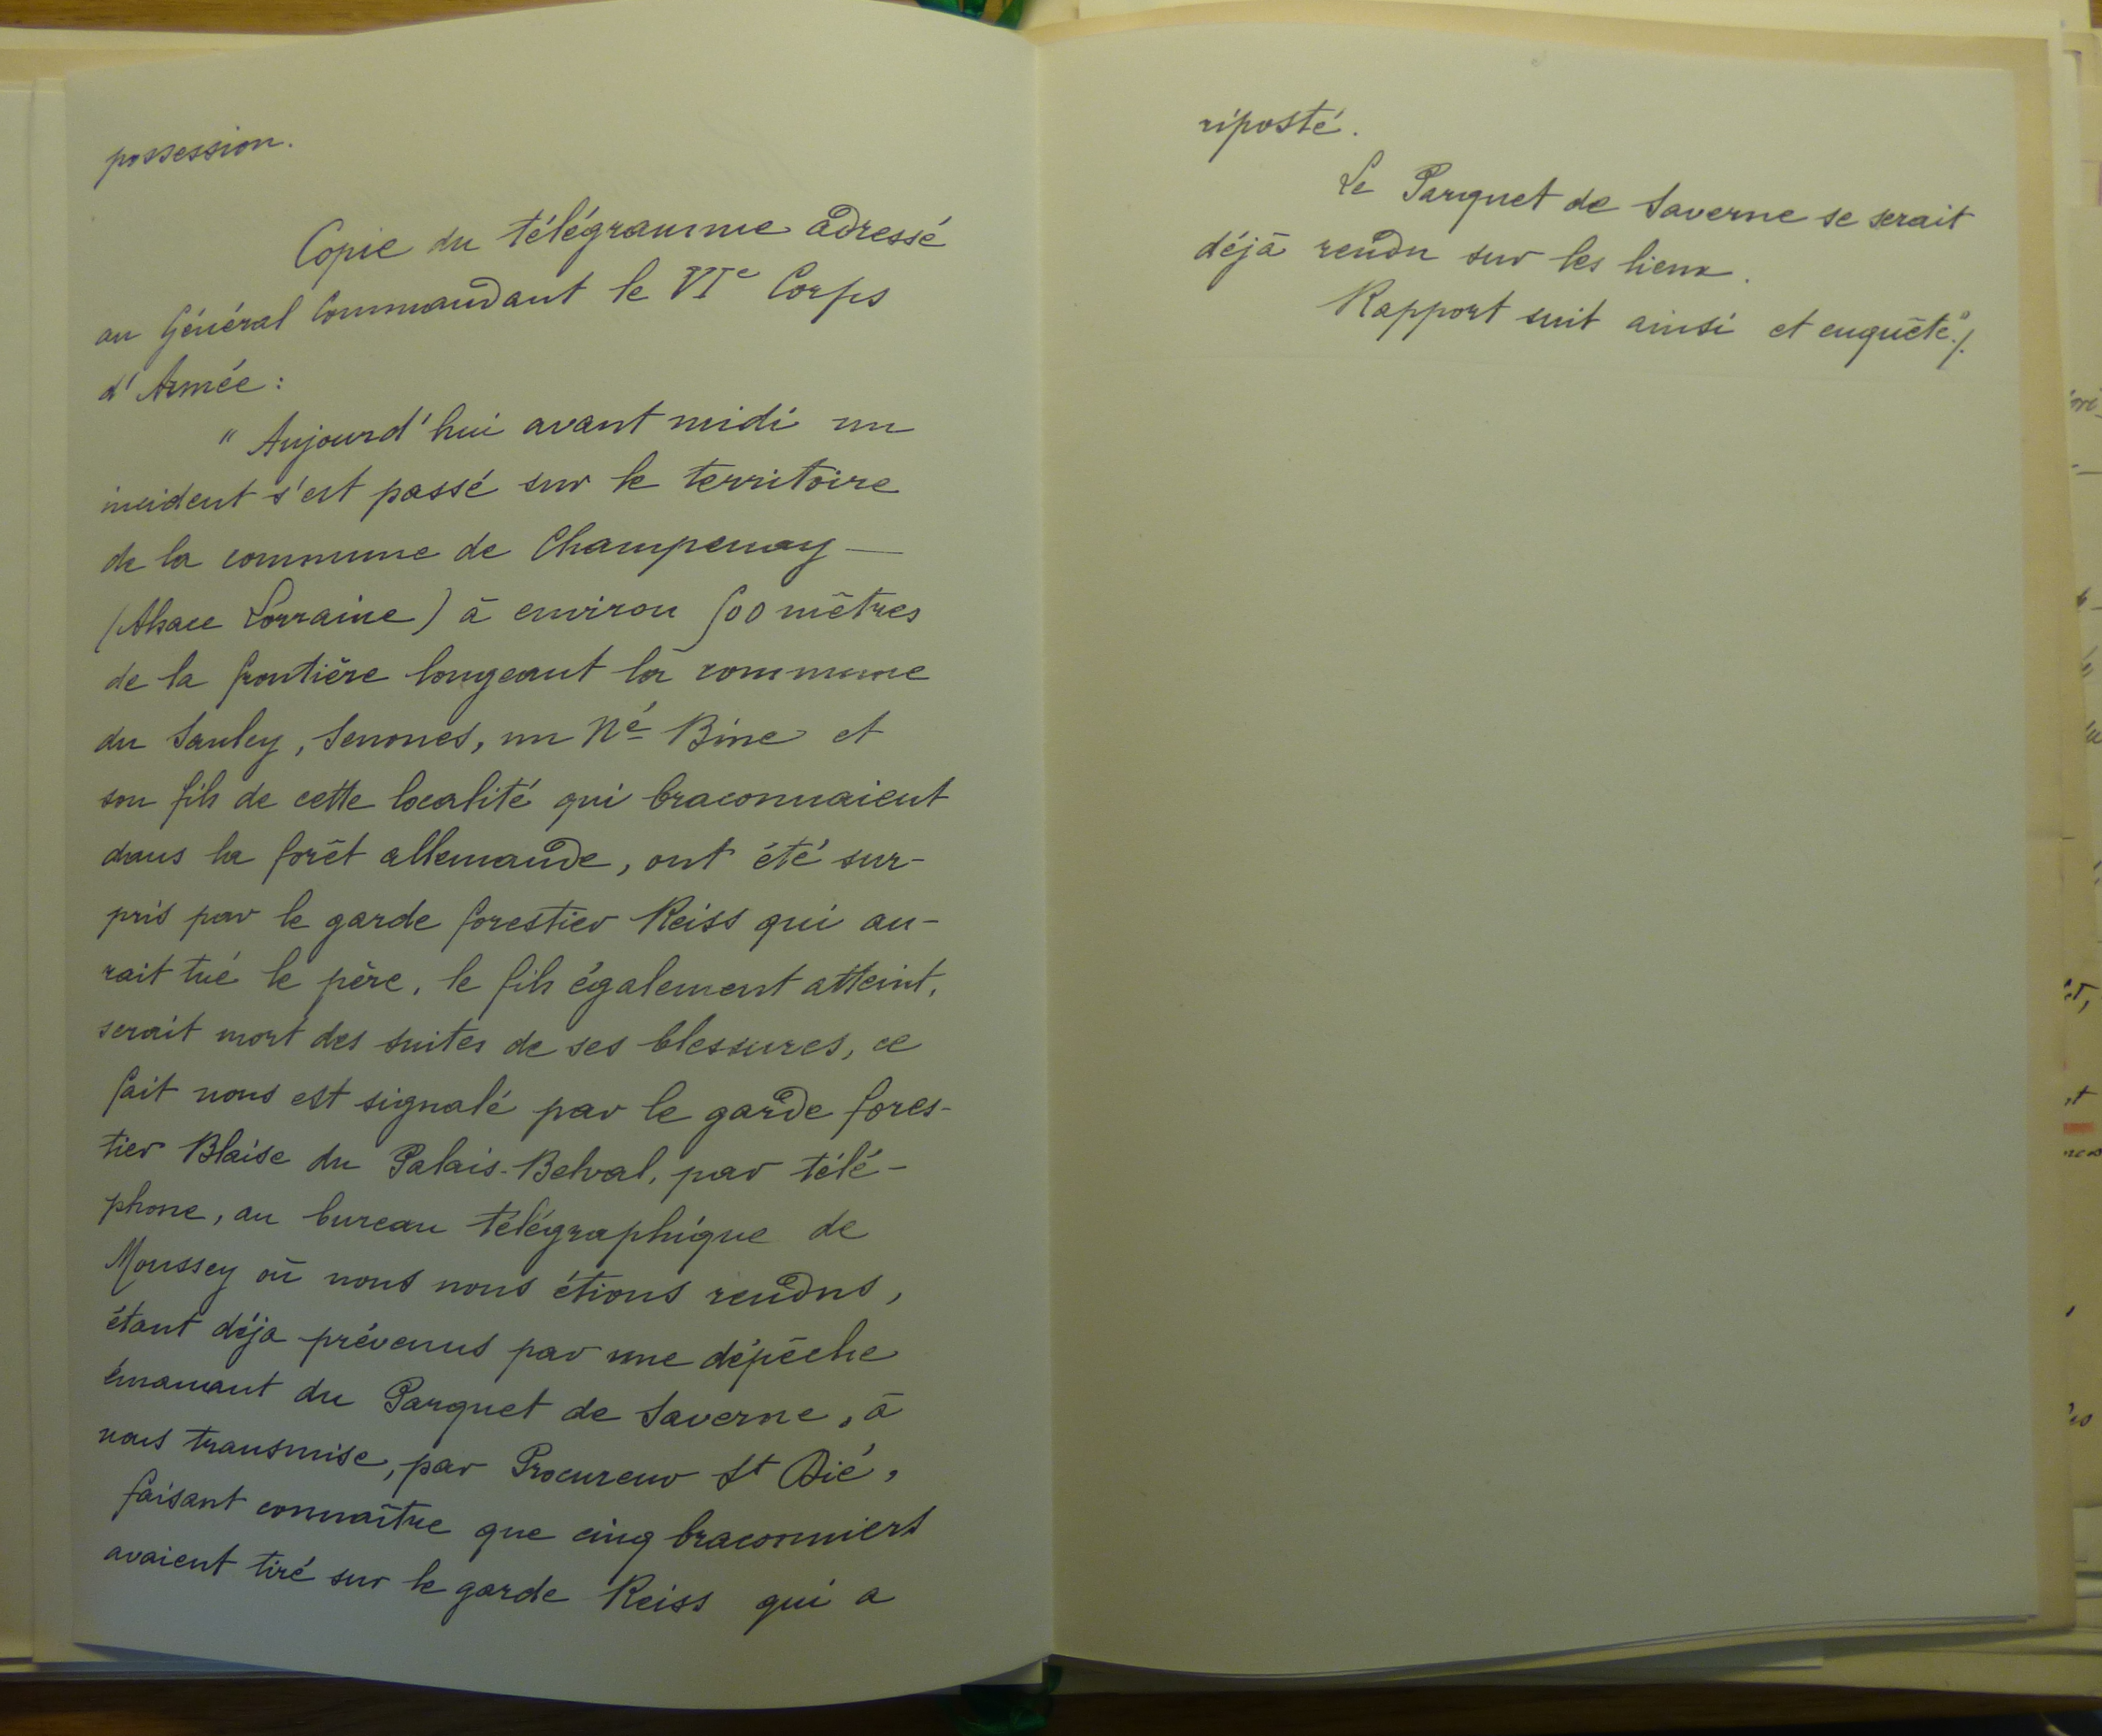 possession.
Copie du télégramme adressé
au Général Commandant le VIe Corps
d'Armée :
" Aujourd'hui avant midi un
incident s'est passé sur le territoire
de la commune de Champenay —
(Alsace Lorraine) à environ 500 mètres
de la frontière longeant la commune
du Saulcy, Senones, un Né Bine et
son fils de cette localité qui braconnaient
dans la forêt allemande, ont été sur-
pris par le garde forestier Reiss qui au-
rait tué le père, le fils également atteint,
serait mort des suites de ses blessures, ce
fait nous est signalé par le garde fores-
tier Blaise du Palais-Belval, par télé-
phone, au bureau télégraphique de
Moussey où nous nous étions rendus,
étant déja prévenus par une dépêche
émanant du Parquet de Saverne, à
nous transmise, par Procureur St Dié,
faisant connaître que cinq braconniers
avaient tiré sur le garde Reiss qui a
riposté.
Le Parquet de Saverne se serait
déjà rendu sur les lieux.
Rapport suit ainsi et enquête"./.